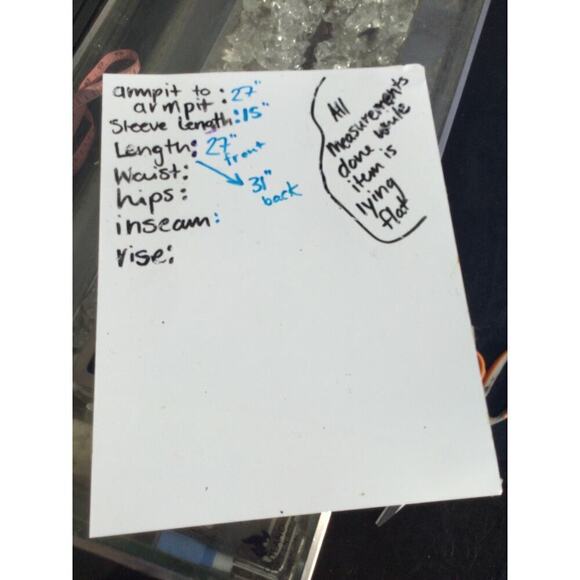 armpit to : 27"
armpit
Sleeve Length: 15"
Length: 27"
front
31"
back
Waist:
hips:
inseam:
rise:
All
measurements
done while
item is
lying
flat